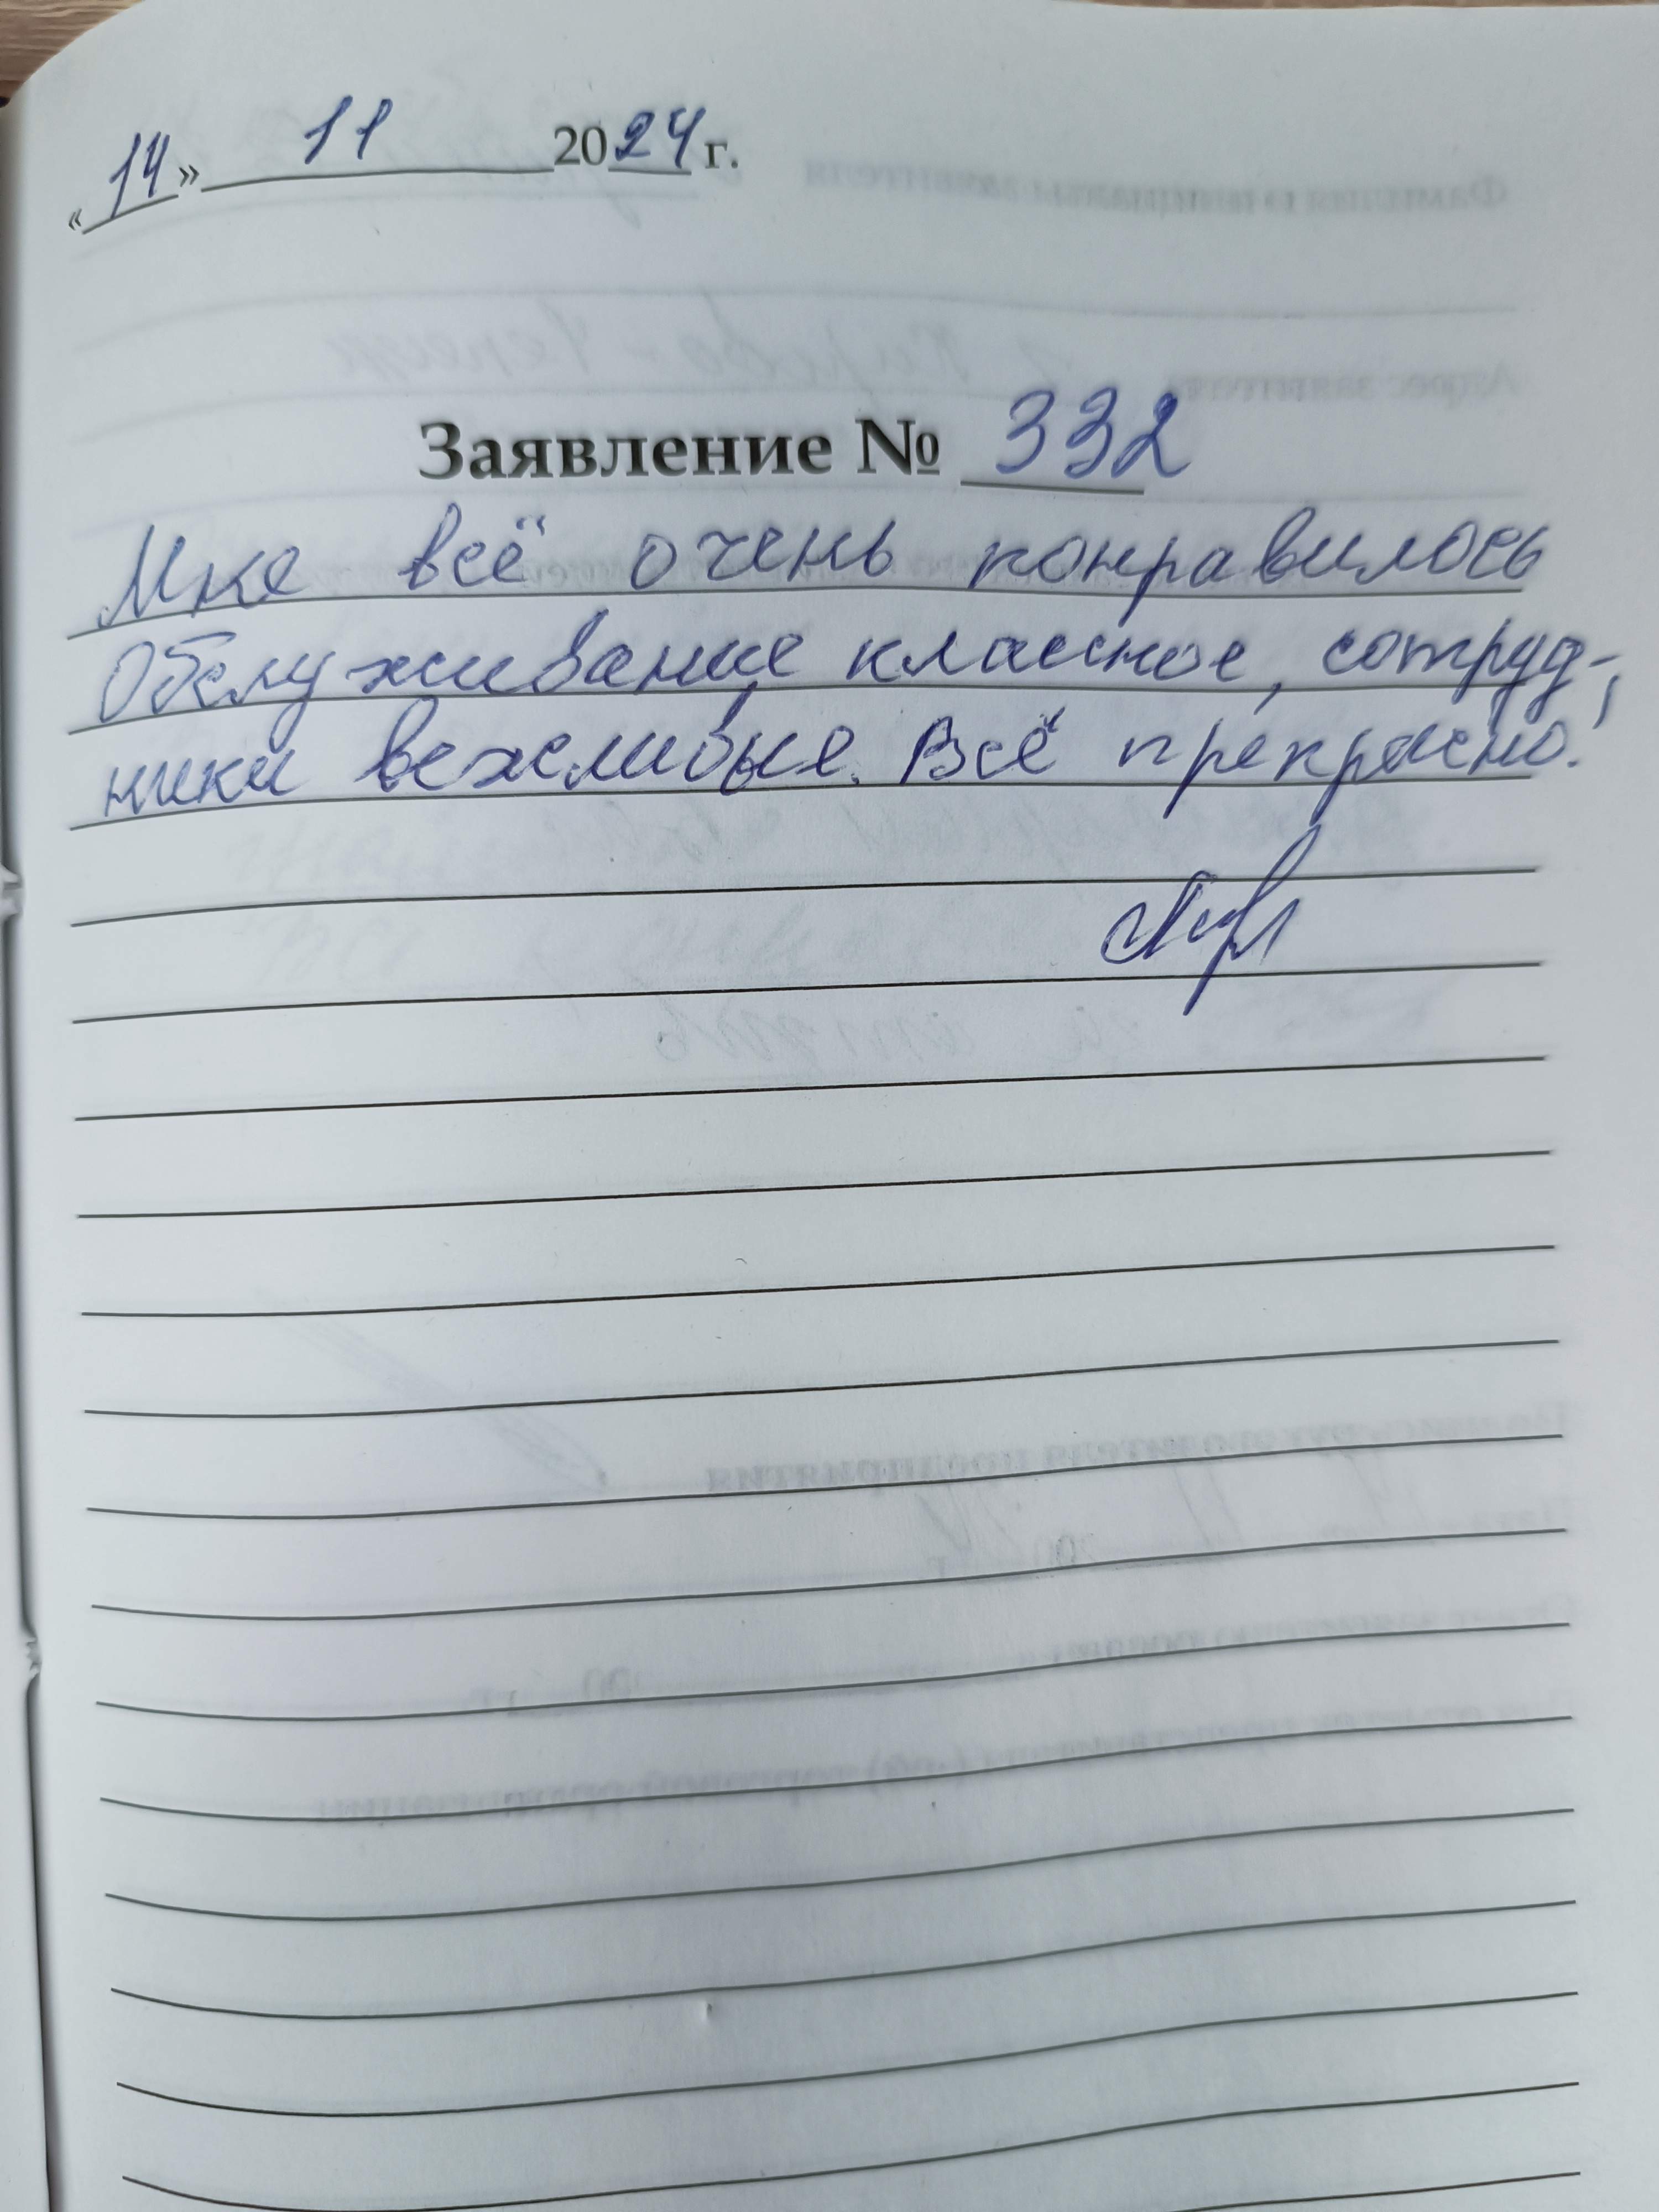 «14» 11 2024 г.
Заявление № 332
Мне всё очень понравилось
Обслуживание классное, сотруд-
ники вежливые. Всё прекрасно!